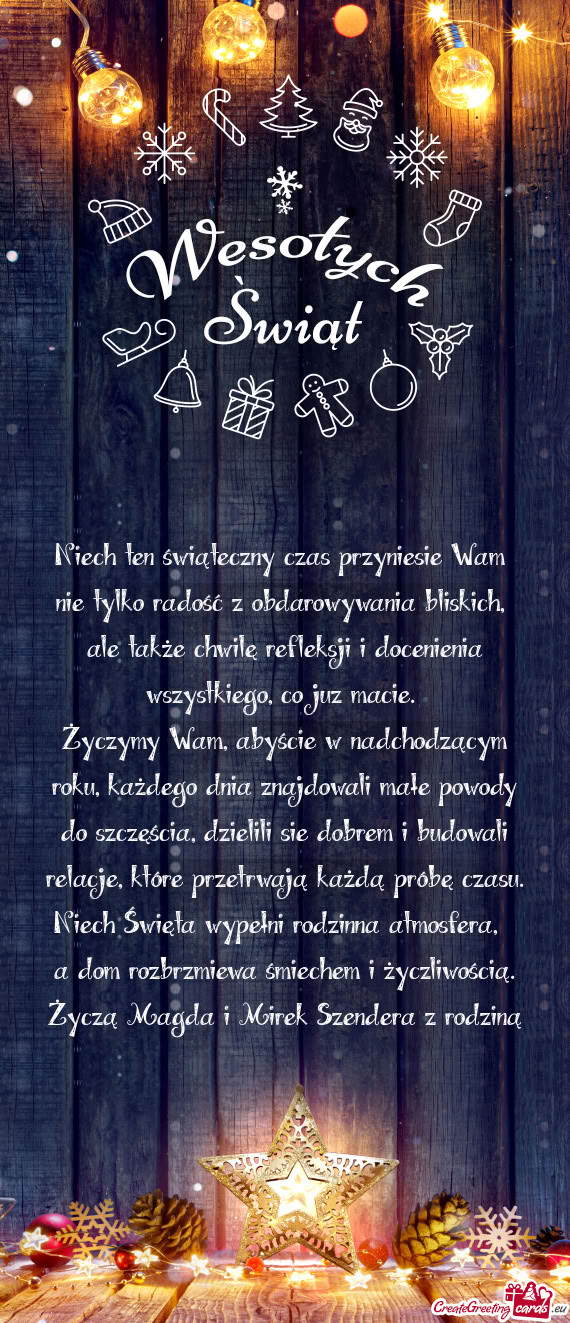 Wesołych
Świąt
Niech ten świąteczny czas przyniesie Wam
nie tylko radość z obdarowywania bliskich,
ale także chwilę refleksji i docenienia
wszystkiego, co juz macie.
Życzymy Wam, abyście w nadchodzącym
roku, każdego dnia znajdowali małe powody
do szczęścia, dzielili sie dobrem i budowali
relacje, które przetrwają każdą próbę czasu.
Niech Święta wypełni rodzinna atmosfera,
a dom rozbrzmiewa śmiechem i życzliwością.
Życzą Magda i Mirek Szendera z rodziną
CreateGreetingcards.eu